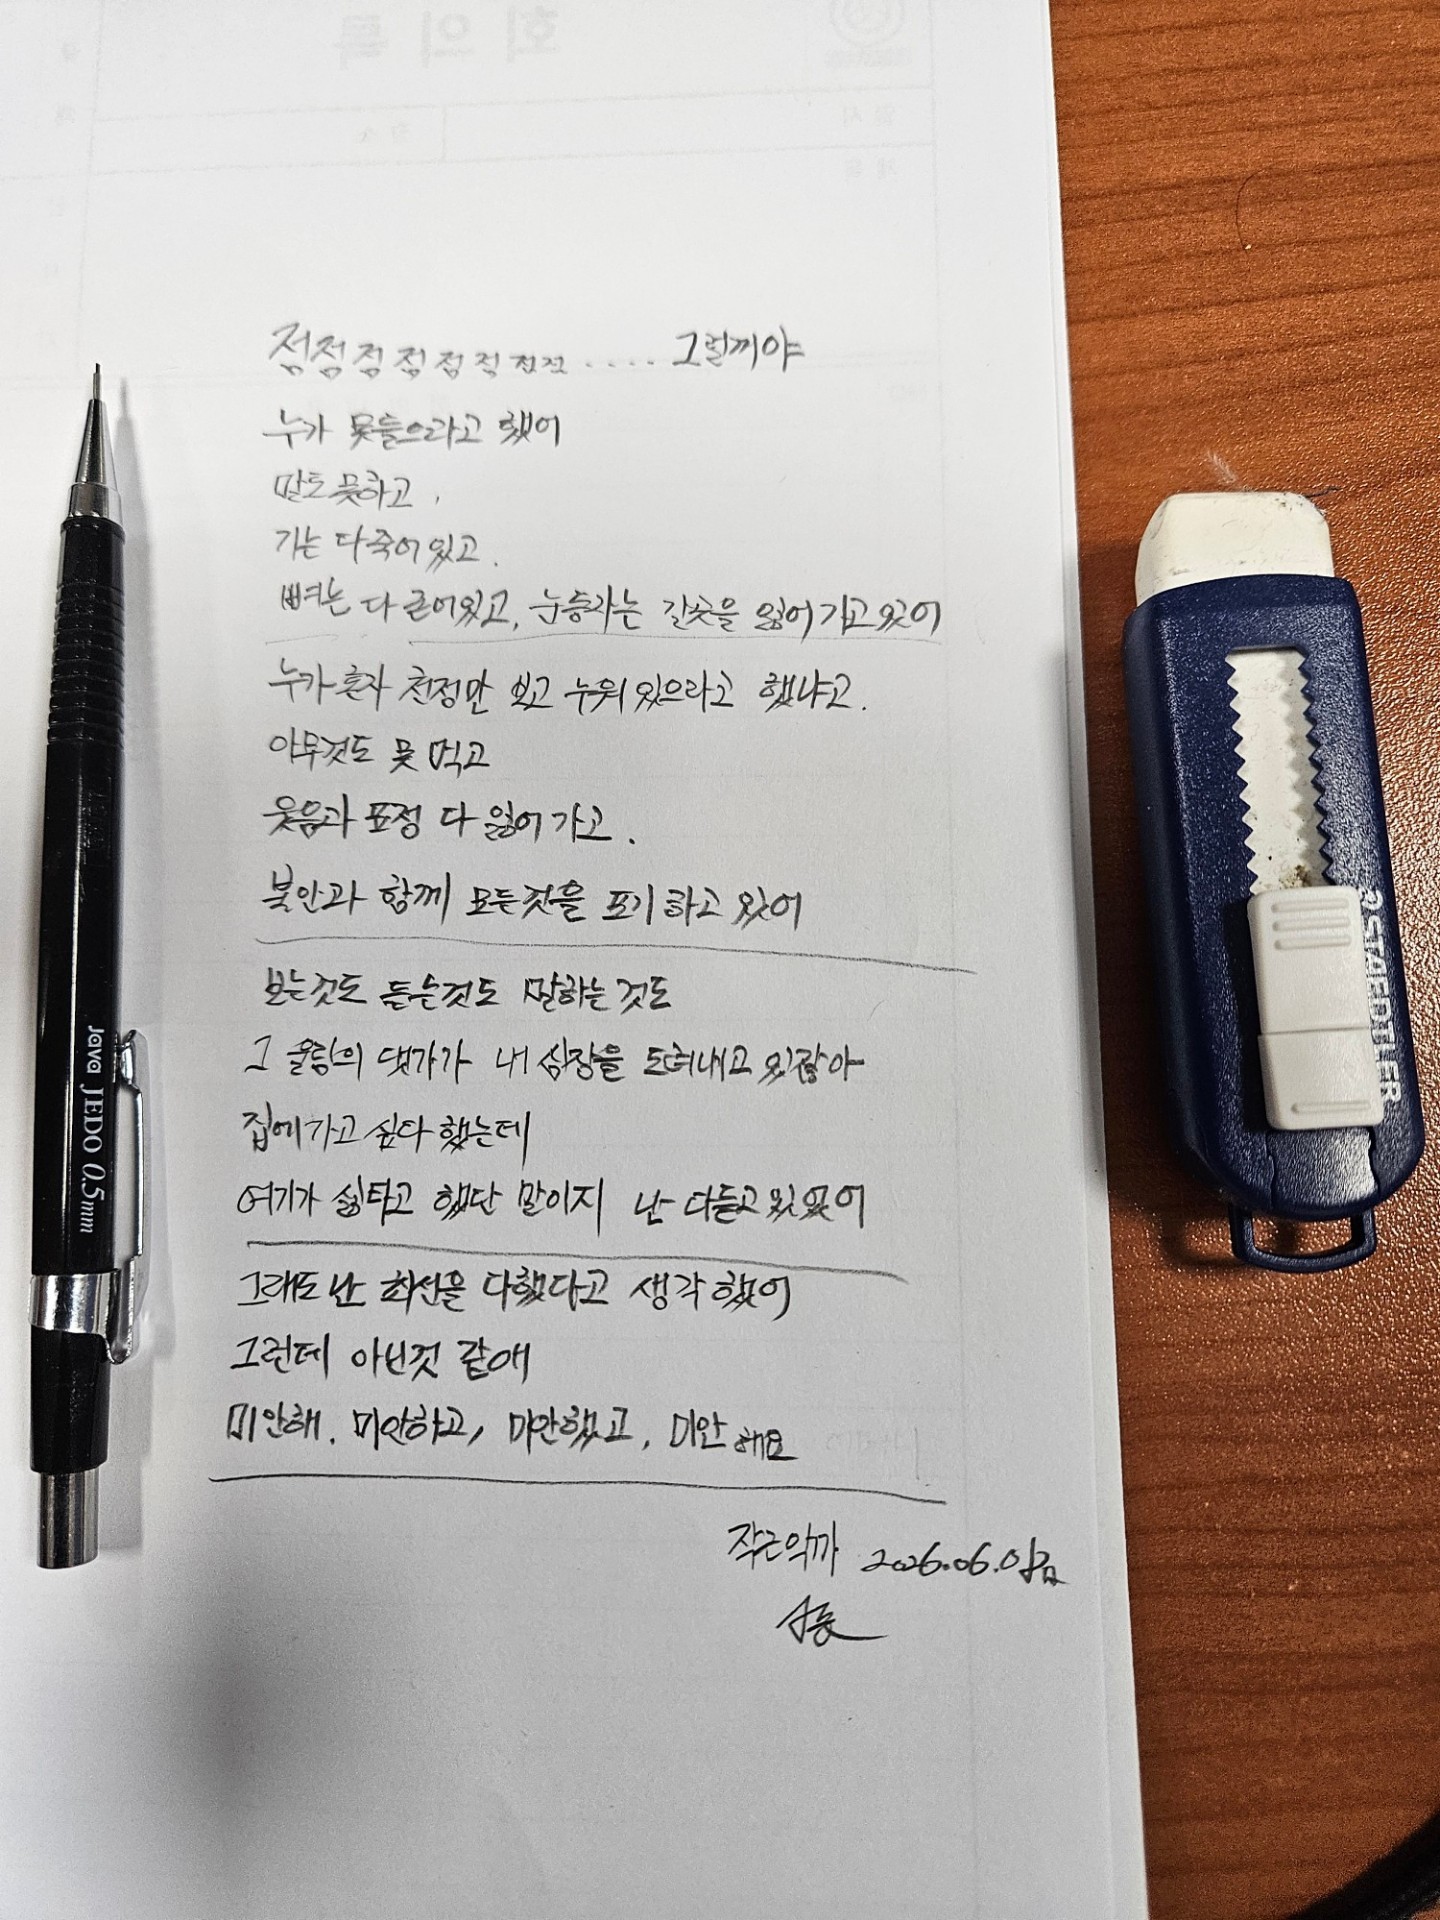 회의록
일시
장소
제목
점점점점점점점점..... 그럴꺼야
누가 못들으라고 했어
말도 못하고,
기는 다죽어있고.
뼈는 다 굳어있고, 눈동자는 갈곳을 잃어가고있어
누가혼자 천정만 보고 누워있으라고 했냐고.
아무것도 못 먹고
웃음과 표정 다 잃어가고.
불안과 함께 모든것을 포기하고 있어
보는것도 듣는것도 말하는것도
그 울림의 댓가가 내 심장을 도려내고 있잖아
집에가고 싶다했는데
여기가 싫타고 했단 말이지 난 다듣고있었어
그래도 난 최선을 다했다고 생각했어
그런데 아닌것 같애
미안해. 미안하고, 미안했고, 미안해요
작은악까 2026.06.
JAVA JEDO 0.5mm
STAEDTLER